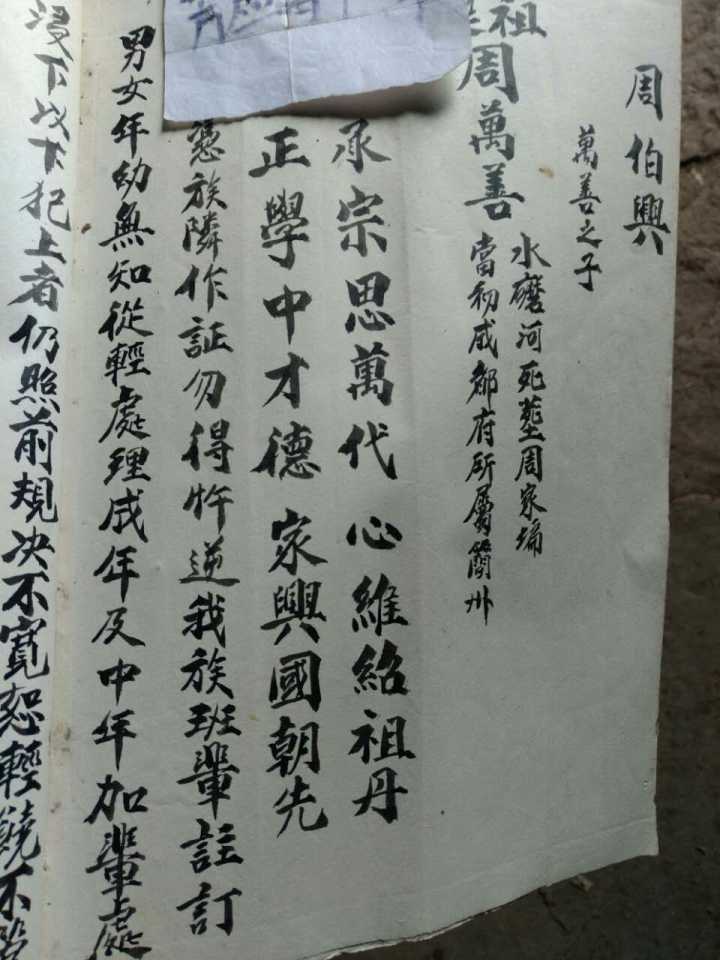 周伯興
萬善之子
祖周萬善
水磨河死墓周家塆
當初成都府所屬簡州
承宗思萬代 心維紹祖丹
正學中才德 家興國朝先
憑族隣作証勿得忤逆我族班輩註訂
男女年幼無知從輕處理成年及中年加輩處
浸下以下犯上者仍照前規决不寬恕輕饒不